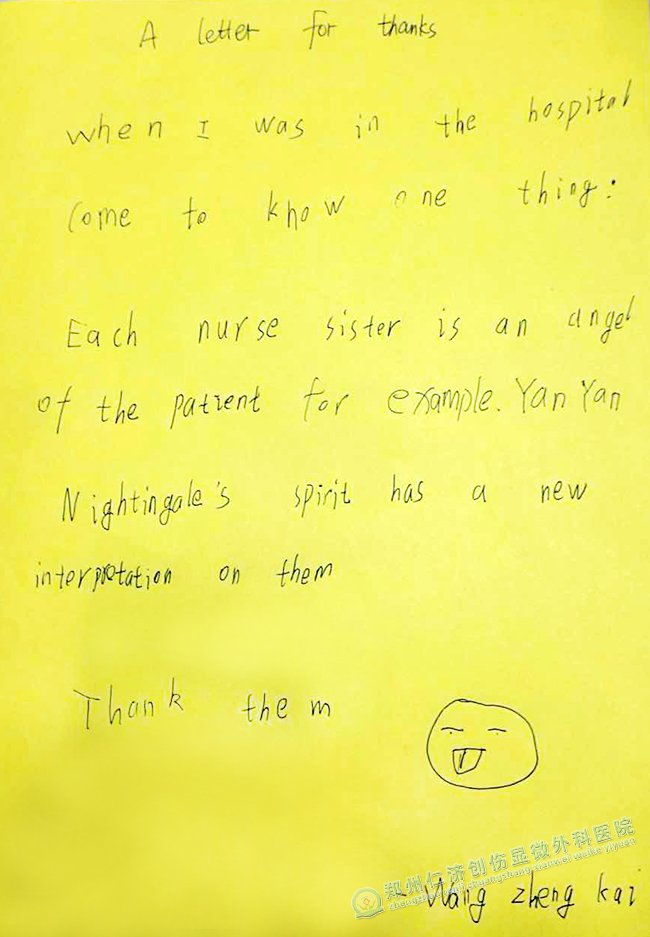 A letter for thanks
when I was in the hospital
Come to know one thing:
Each nurse sister is an angel
of the patient for example. Yan Yan
Nightingale's spirit has a new
interpretation on them
Thank them
郑州仁济创伤显微外科医院
Wang zheng kai